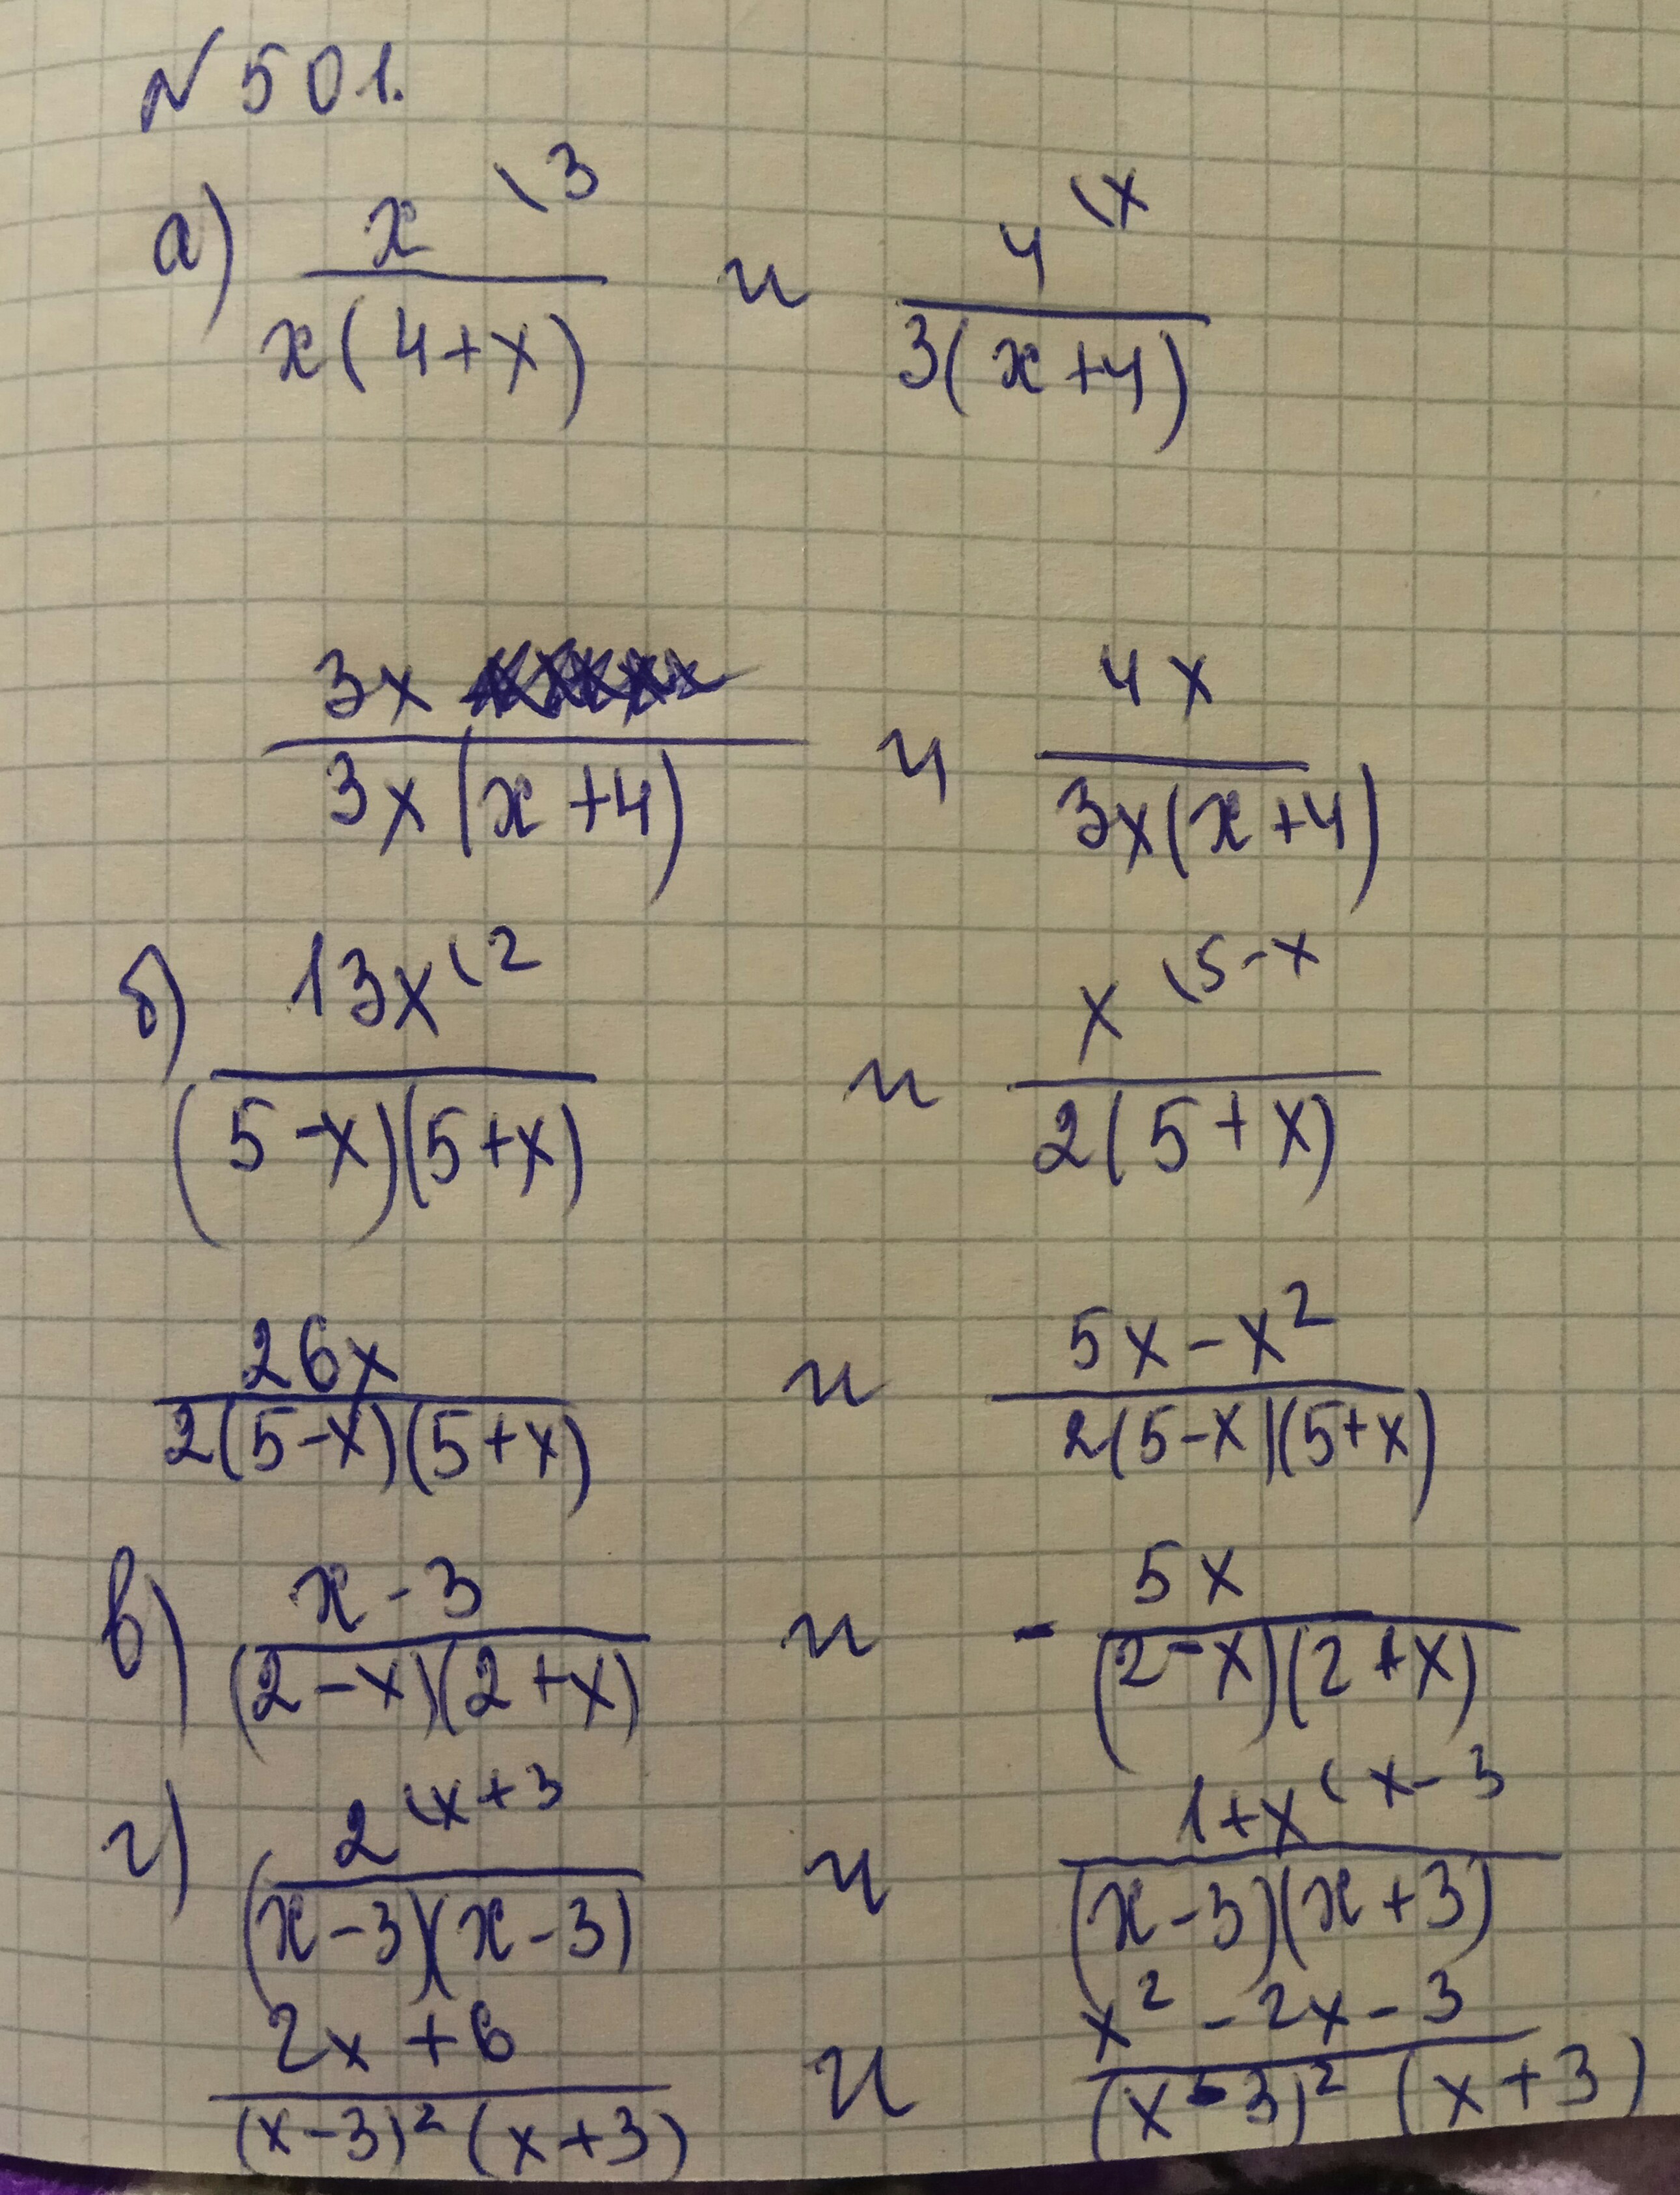 № 501.
а) x \3 / x(4+x) и 4 \x / 3(x+4)
3x / 3x(x+4) и 4x / 3x(x+4)
б) 13x \2 / (5-x)(5+x) и x \5-x / 2(5+x)
26x / 2(5-x)(5+x) и 5x-x² / 2(5-x)(5+x)
в) x-3 / (2-x)(2+x) и - 5x / (2-x)(2+x)
г) 2 \x+3 / (x-3)(x-3) и 1+x \x-3 / (x-3)(x+3)
2x+6 / (x-3)²(x+3) и x²-2x-3 / (x-3)²(x+3)